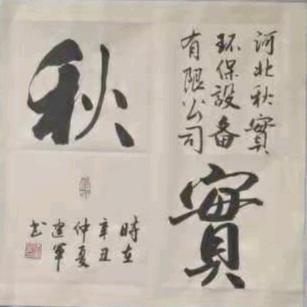 河北秋實
环保設备
有限公司
實
秋
時在
辛丑
仲夏
建军
书